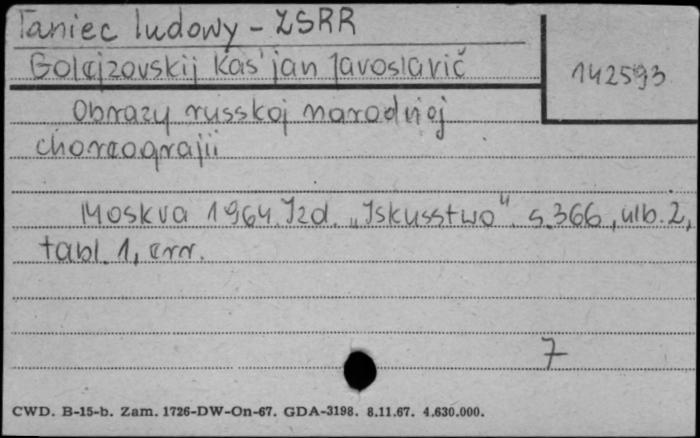 Taniec ludowy - ZSRR
Golejzovskij Kas'jan Jaroslavič
142593
Obrazy russkoj narodnoj
choreografii
Moskva 1964. Izd. "Iskusstwo". s. 366, ulb. 2,
tabl. 1, err.
7
CWD. B-15-b. Zam. 1726-DW-On-67. GDA-3198. 8.11.67. 4.630.000.